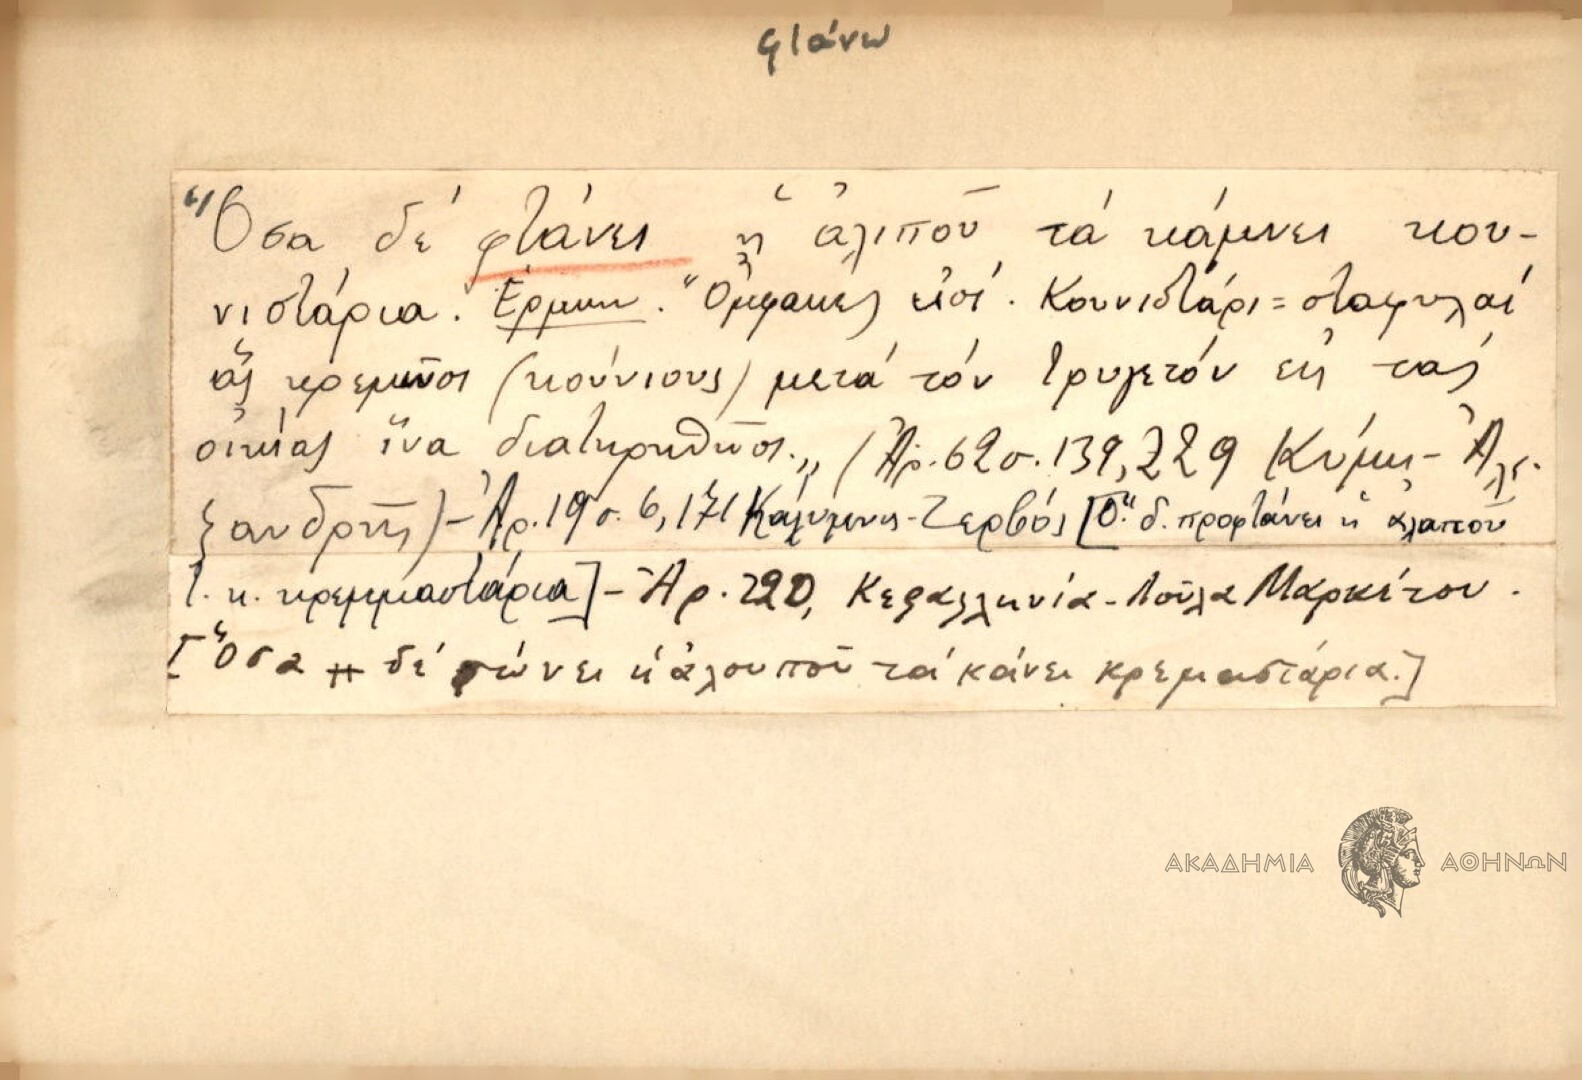 φτάνω
"Ὅσα δέ φτάνει ἡ ἀλιποῦ τά κάμνει κου-
νιστάρια. Ἑρμην. "Ὄμφακές εἰσί. Κουνιστάρι = σταφυλαί
ἅς κρεμῶσι (κούνιους) μετά τόν τρυγετόν εἰς τάς
οἰκίας ἵνα διατηρηθῶσι.,, (Ἀρ. 62 σ. 139, 229 Κύμης - Ἀλε-
ξανδρῆς) - Ἀρ. 19 σ. 6, 171 Κάλυμνος - Ζερβός [Ὅ. δ. προφτάνει ἡ ἀλαποῦ
τ. κ. κρεμμαστάρια] - Ἀρ. 220, Κεφαλληνία - Λούλα Μαρκέτου.
[Ὅσα δέ φτώνει ἡ ἀλουποῦ τά κάνει κρεμαστάρια.]
ΑΚΑΔΗΜΙΑ ΑΘΗΝΩΝ